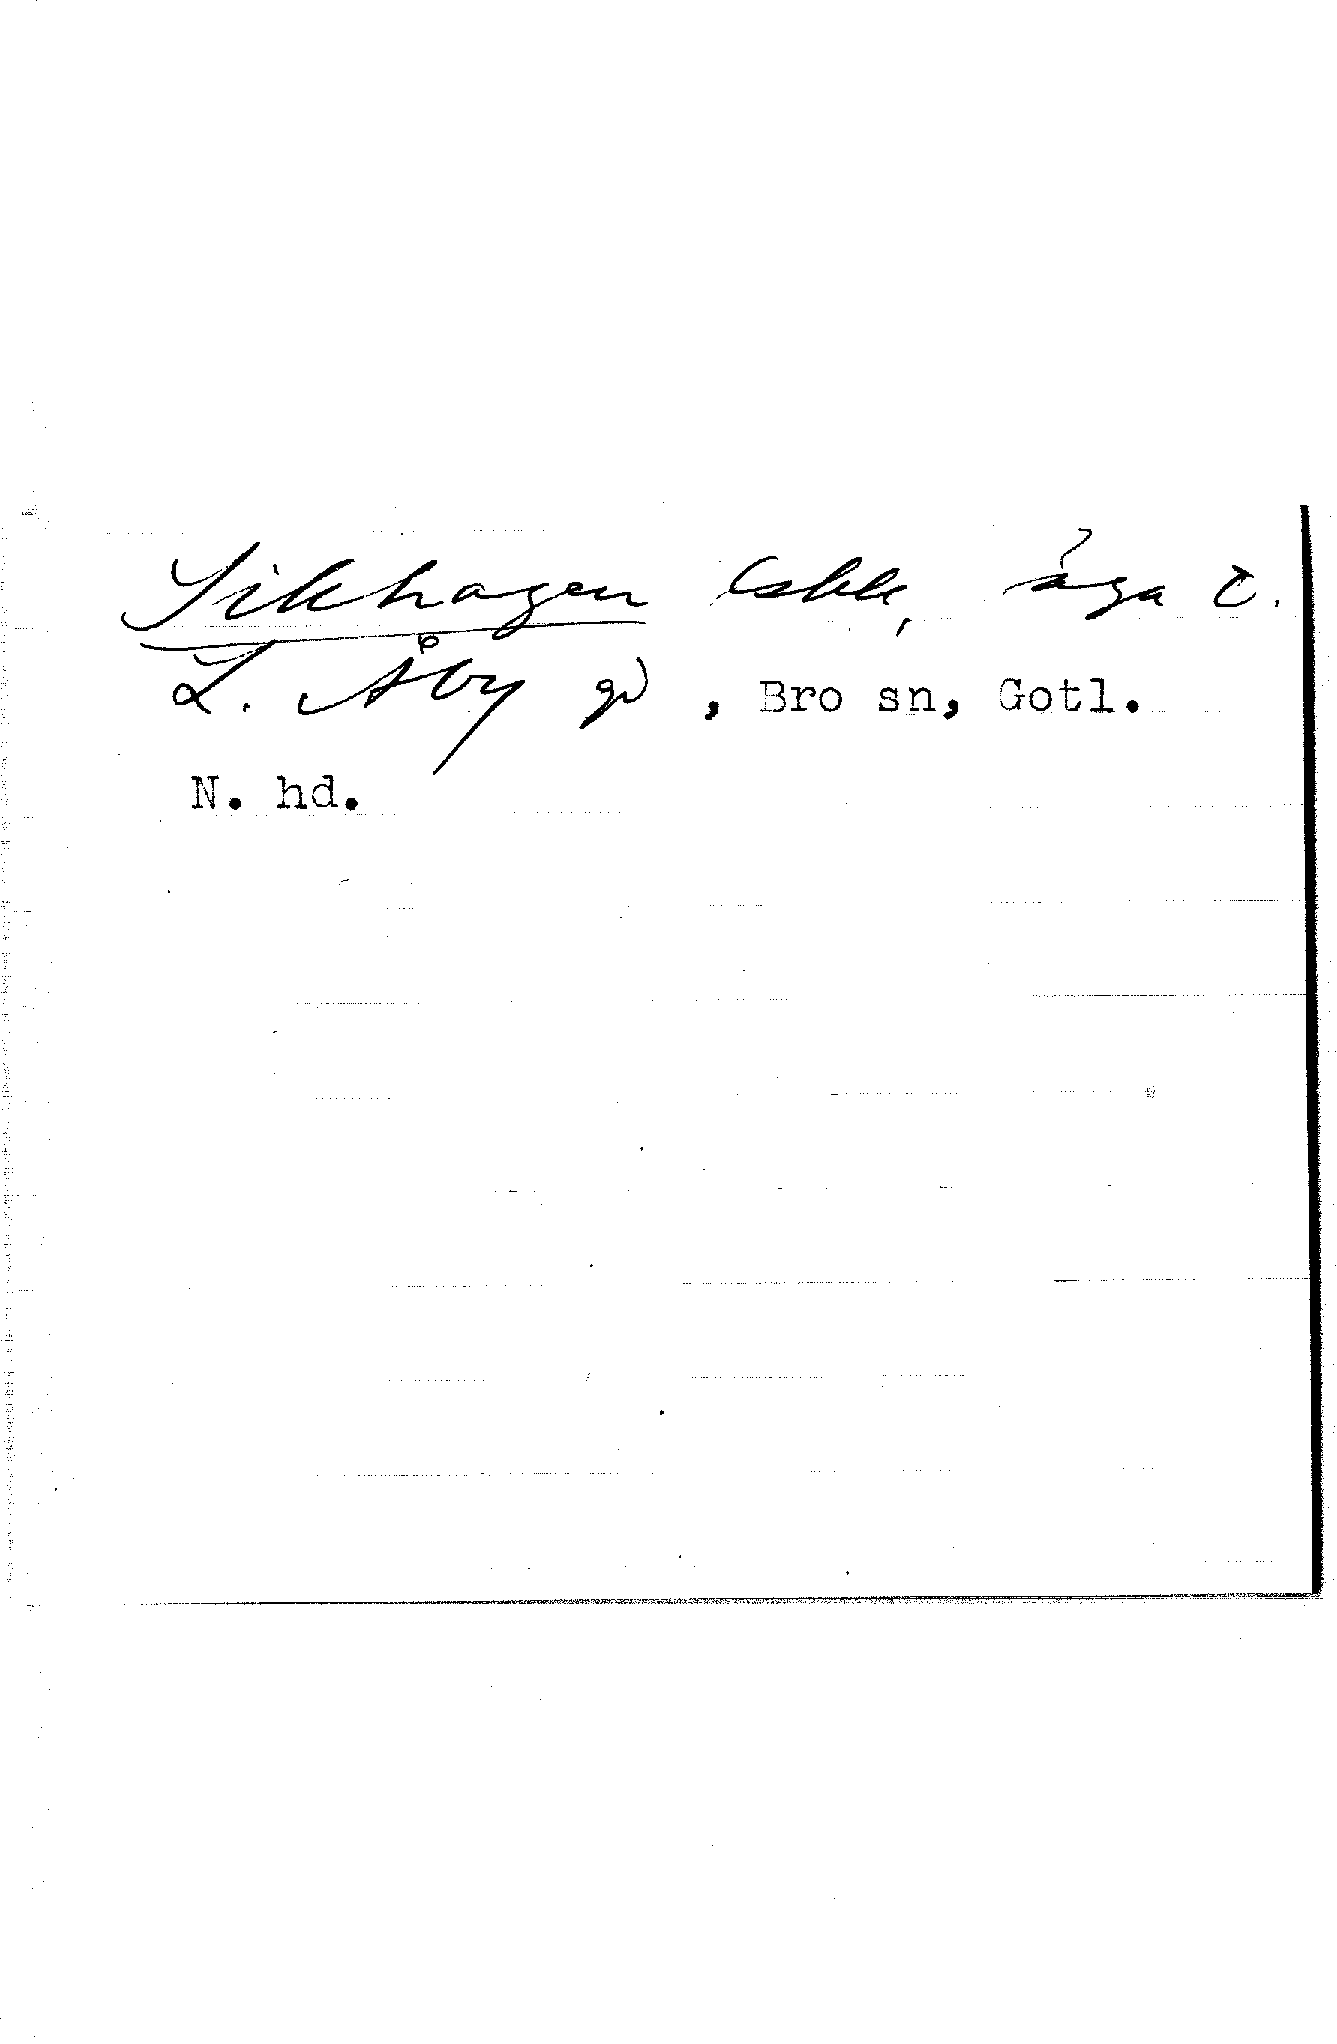 Sikhagen bskk, äga t.
L. Åby gd, Bro sn, Gotl.
N. hd.